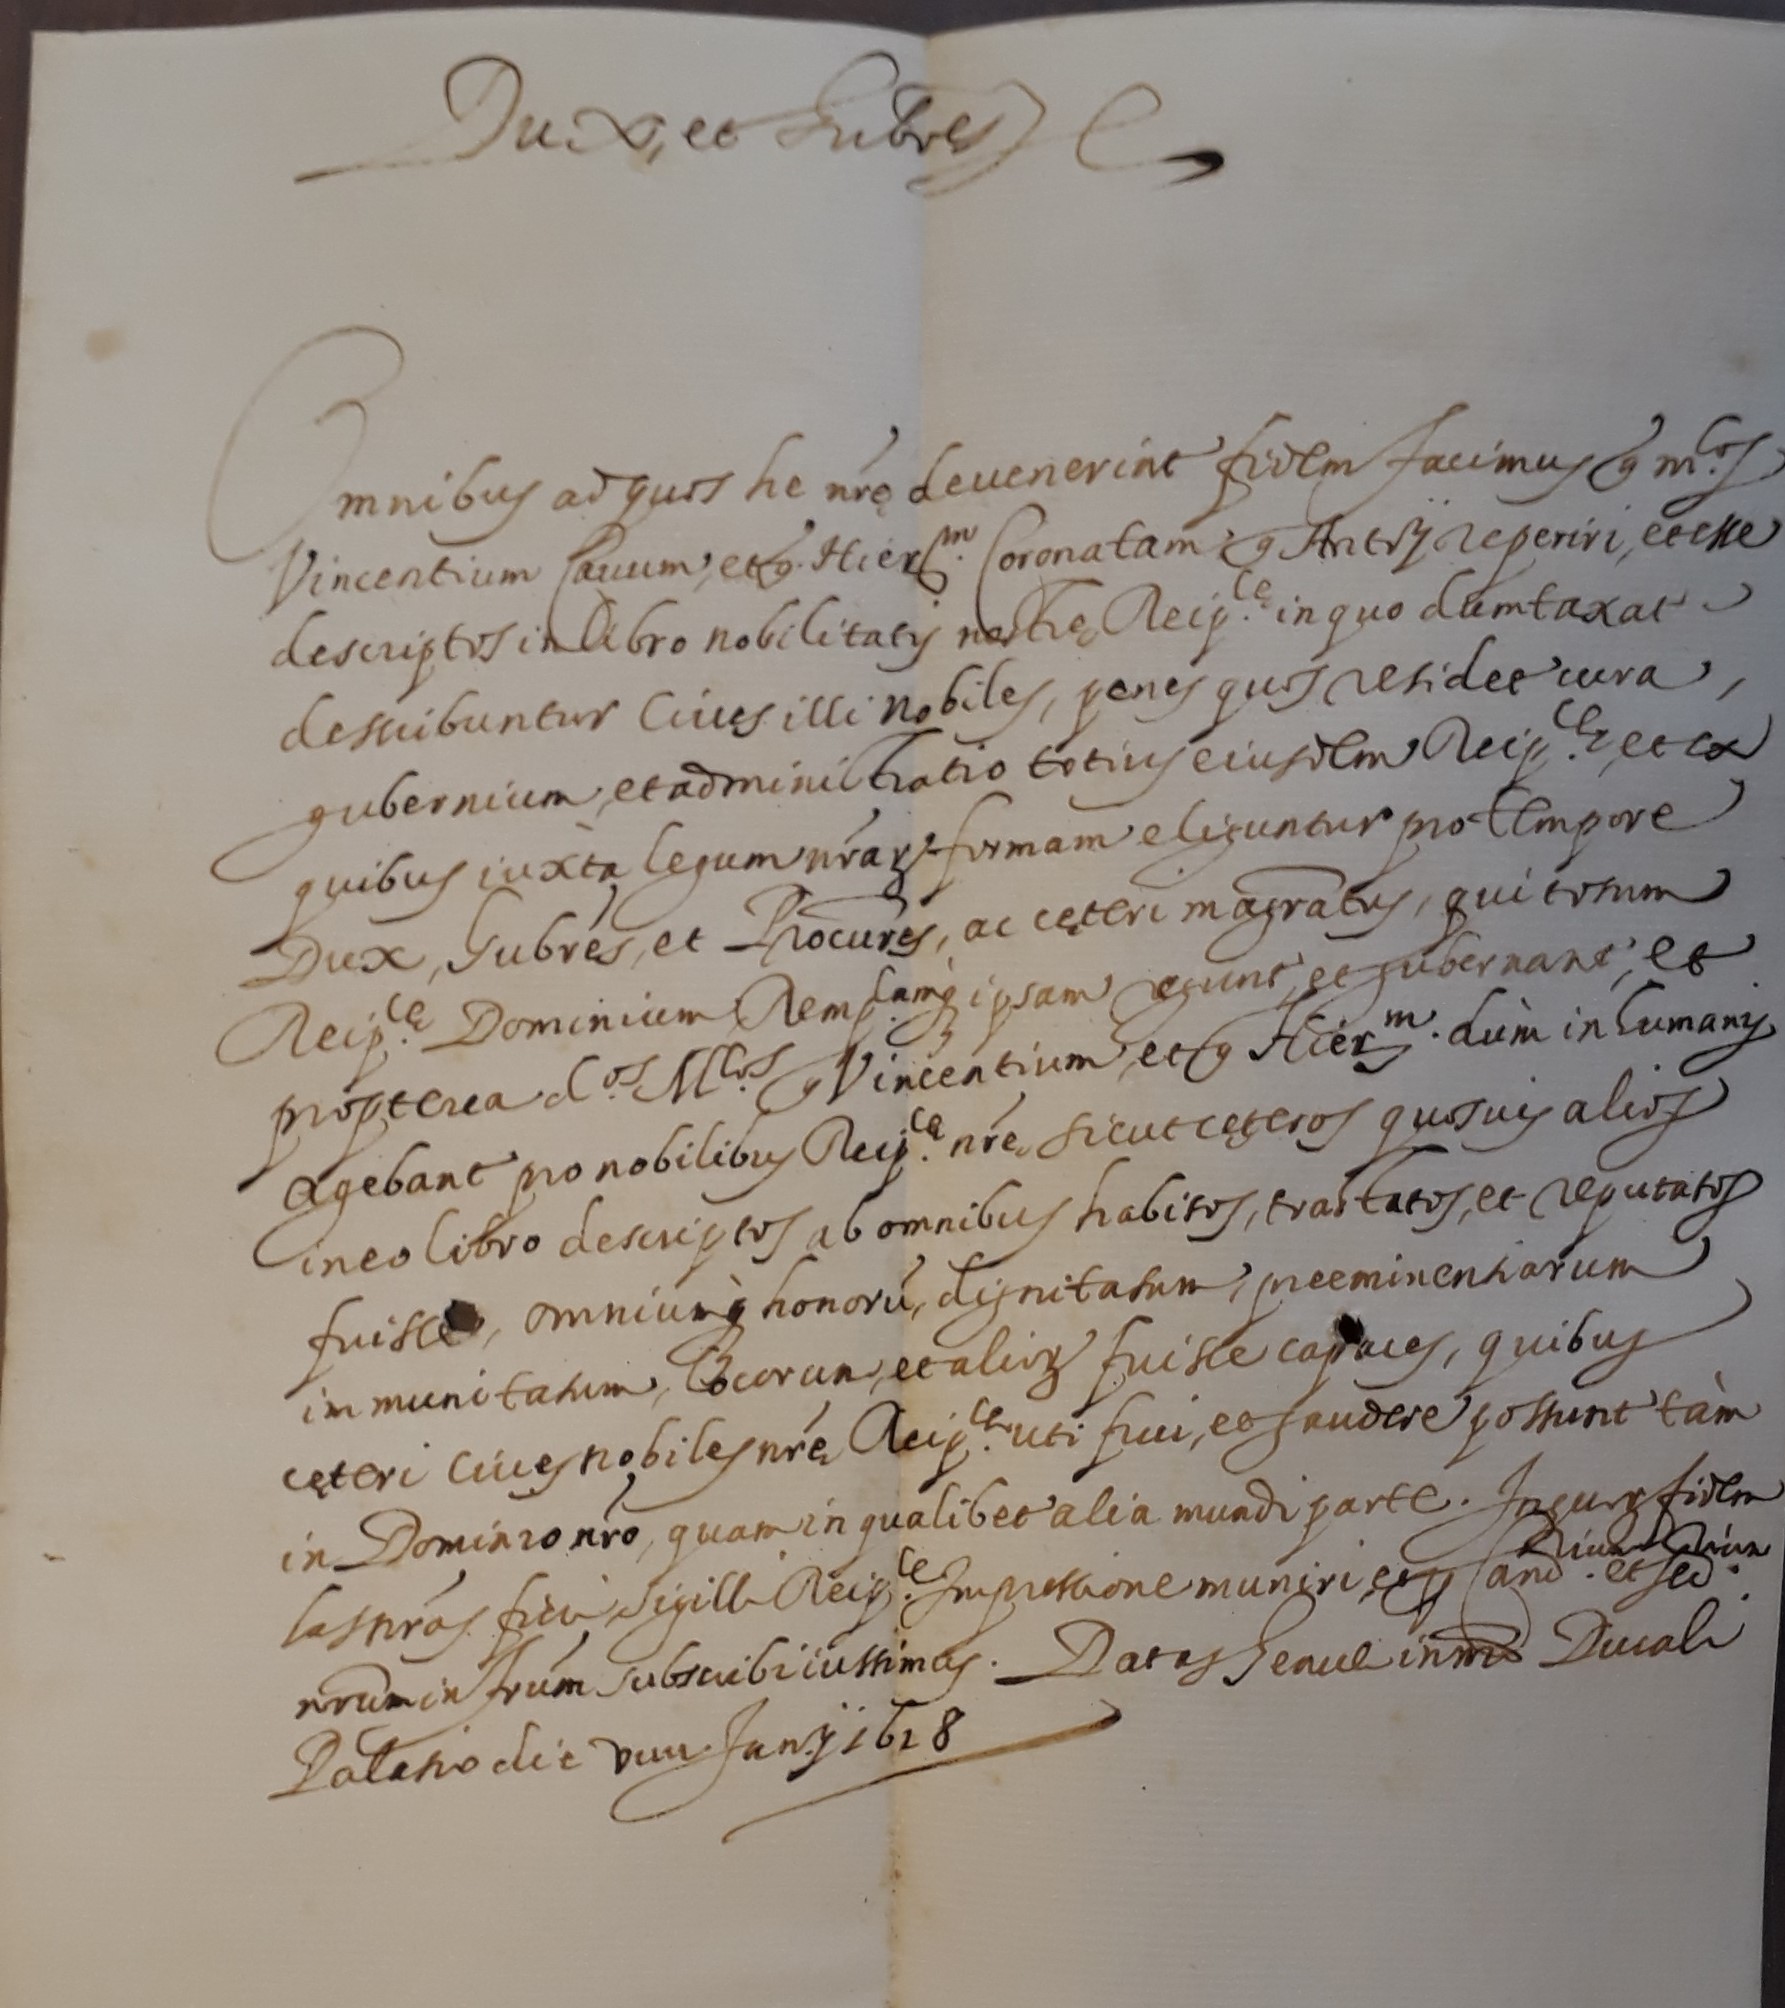 Dux, et Gubres
Omnibus ad quos he nrę devenerint fidem facimus q mcos
Vincentium Cauum, et q. Hier.m Coronatam q Antrij reperiri, et esse
descriptos in libro nobilitatis nostrę Reip.cę in quo dumtaxat
describuntur Ciues illi nobiles, penes quos residet cura,
gubernium, et administratio totius eiusdem Reip.cę, et ex
quibus iuxta legum nrarz formam eliguntur pro tempore
Dux, Gubres, et Procures, ac cęteri magratus, qui totum
Reip.cę Dominium Remp.camq ipsam regunt, et gubernant, et
propterea d.os Mcos q Vincentium, et q Hier.m dùm in humanis
agebant pro nobilibus Reip.cę nrę sicut cęteros quosuis alios
in eo libro descriptos ab omnibus habitos, tractatos, et reputatos
fuisse, omniumq honorū, dignitatum, preeminentiarum
immunitatum, locorum, et aliorz fuisse capaces, quibus
cęteri Ciues nobiles nrę Reip.cę uti frui, et gaudere possunt tàm
in Dominio nro, quam in qualibet alia mundi parte. In quorz fidem
has nras fieri, sigilli Reip.cę Impressione muniri, et p Canc. et Sec.
nrum infrum subscribi iussimus. Datas Genuę in nro Ducali
Palatio die viii Janrij 1628